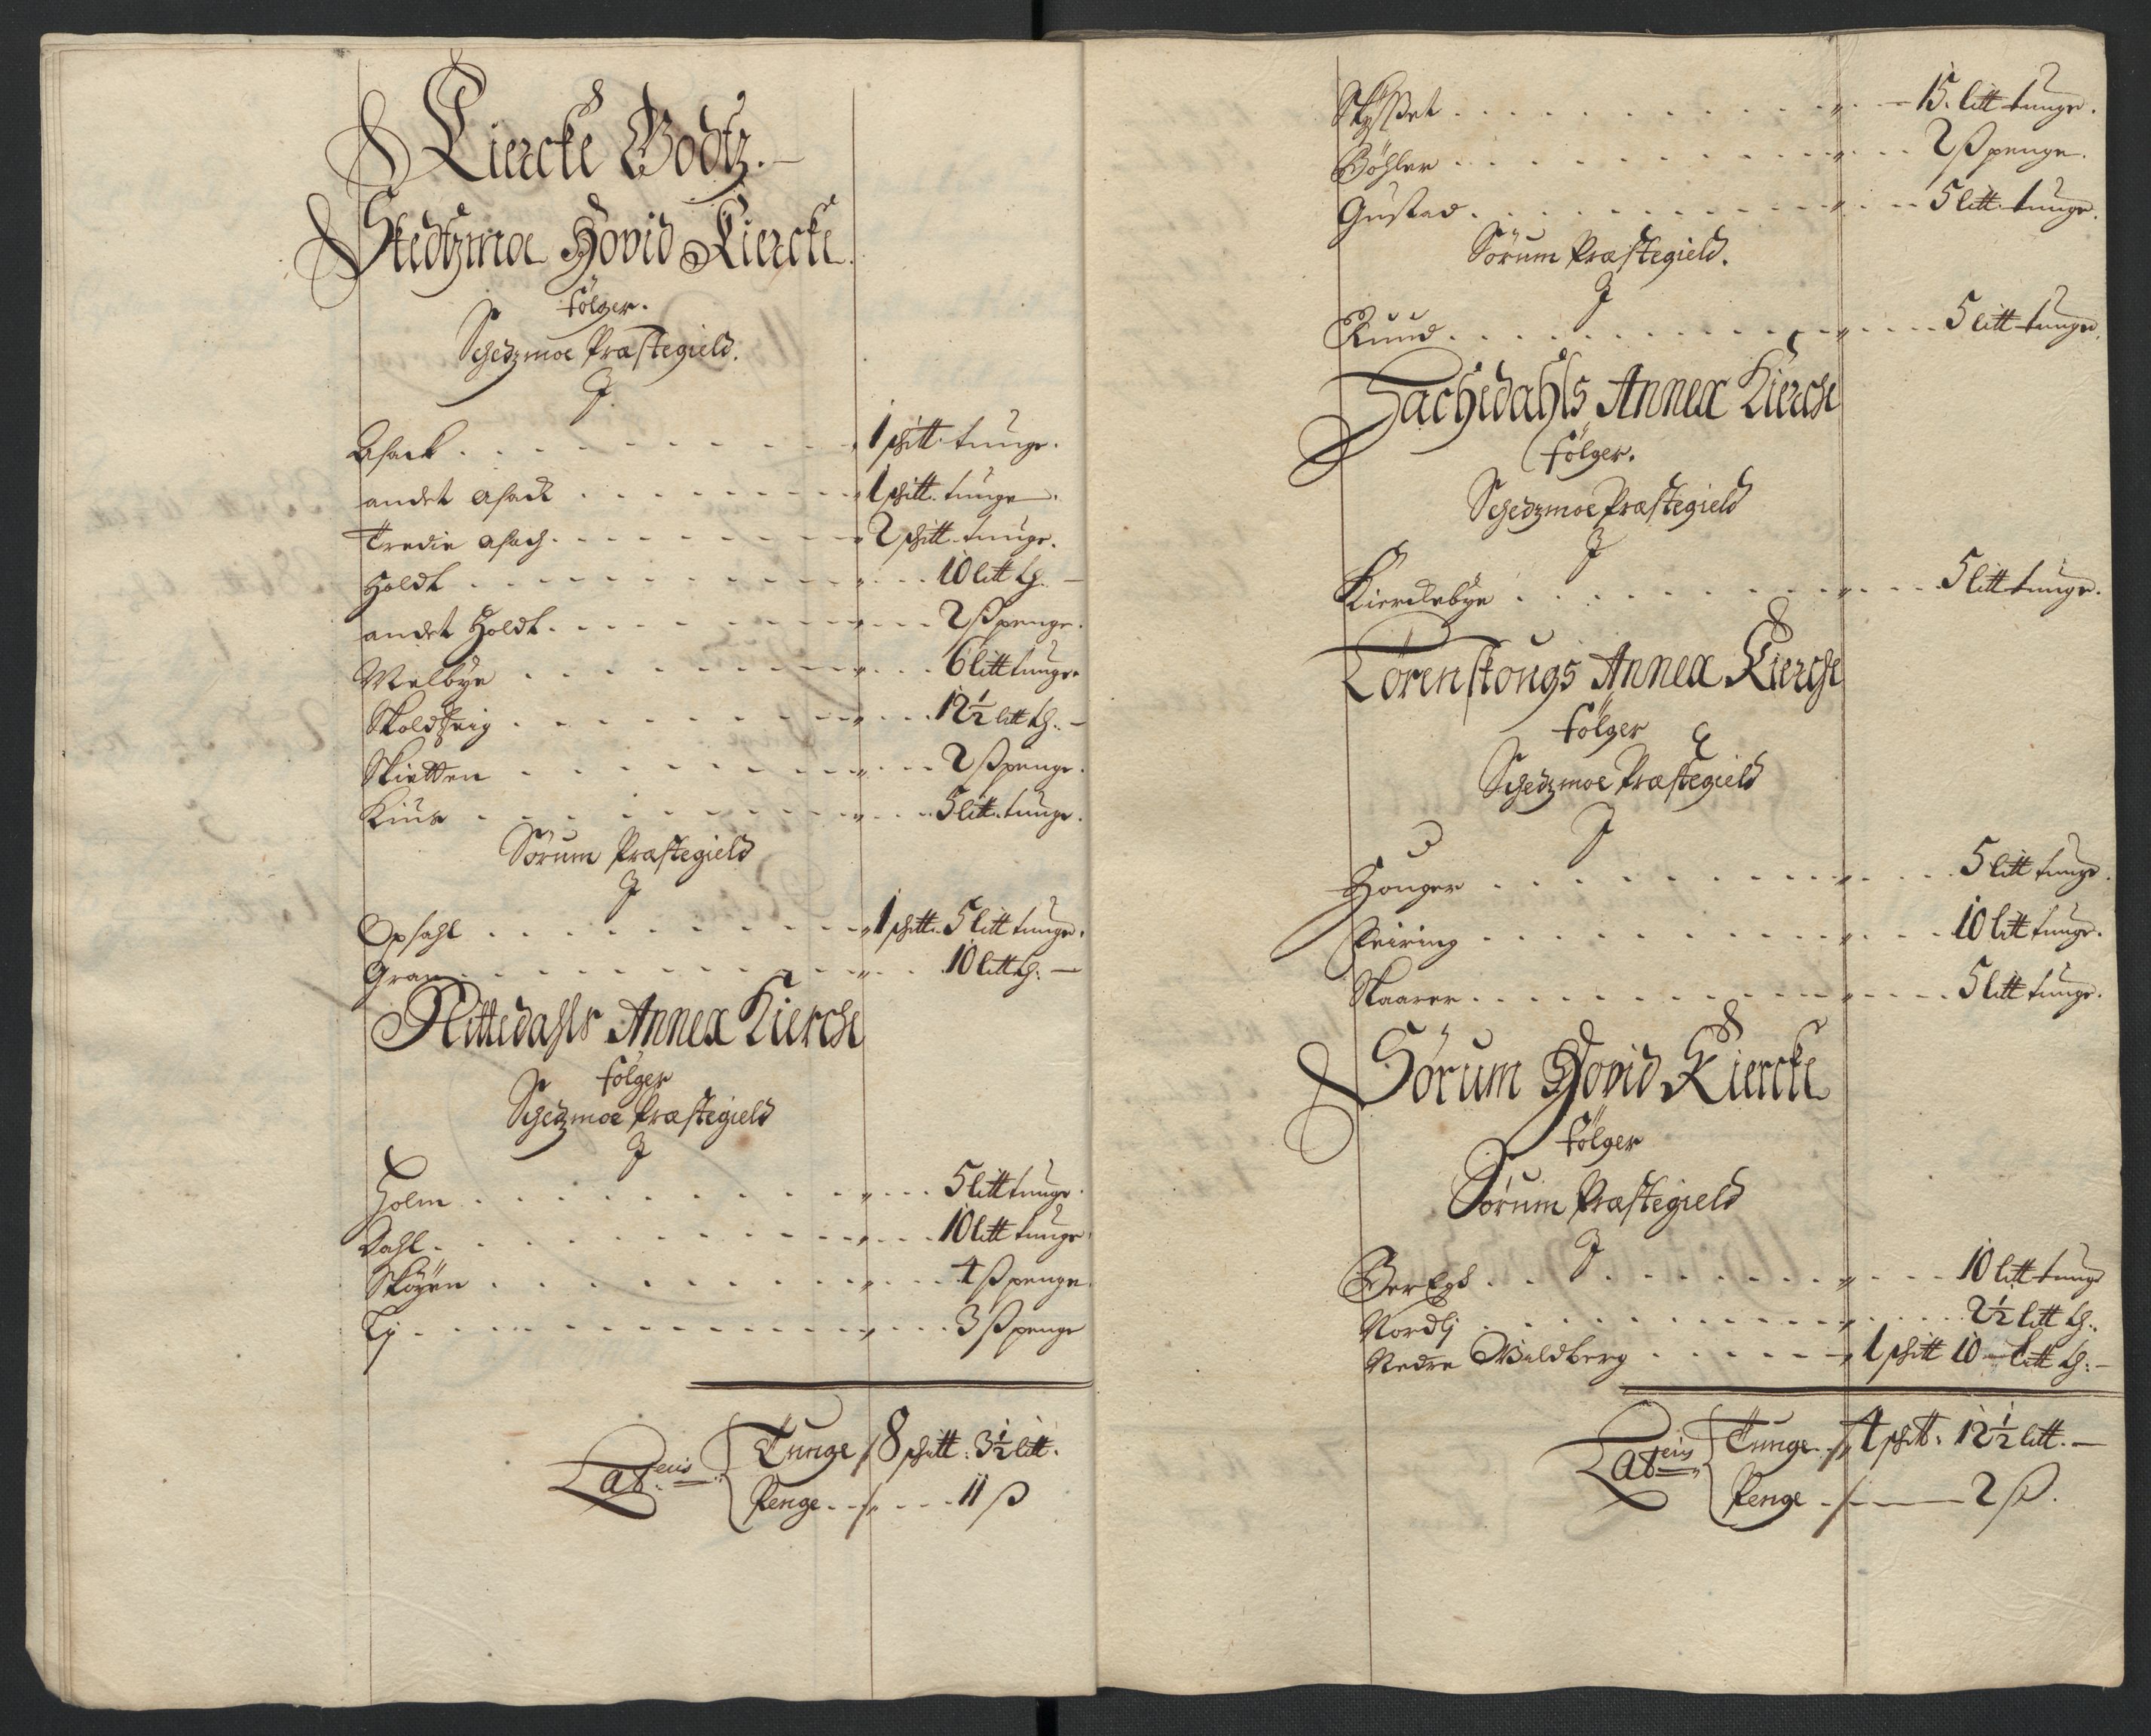 Kiercke Godtz.
Skedtzmoe Hovid Kiercke
følger.
Schedzmoe Præstegield.
J
Asack . . . 1 skitt tunge.
andet Asack . . . 1 skitt. tunge.
Tredie Asach . . . 2 skitt. tunge.
Holdt . . . 10 litt tg. —
andet Holdt . . . 2 ß penge.
Melbye . . . 6 litt tunge.
Skoldheig . . . 12½ litt tg. —
Skietten . . . 2 ß penge.
Kiuus . . . 5 litt. tunge.
Sørum Præstegield
J
Opsahl . . . 1 skitt. 5 litt tunge.
Gran . . . 10 litt tg. —
Nittedahls Annex Kierche
følger
Schedzmoe Præstegield
J
Holm . . . 5 litt tunge.
Dahl . . . 10 litt tunge.
Skøyen . . . 4 ß penge.
Lj . . . 3 ß penge
Lateris Tunge 8 skitt: 3½ litt.
Penge . . . 11 ß
Skÿsset . . . 15. litt tunge.
Bøhler . . . 2 ß penge.
Gustad . . . 5 litt. tunge.
Sørum Præstegield.
J
Ruud . . . 5 litt tunge.
Hachedahls Annex Kierche
følger.
Schedzmoe Præstegield
J
Kierulebye . . . 5 litt tunge.
Lørenskougs Annex Kierche
følger
Schedzmoe Præstegield
J
Houger . . . 5 litt tunge.
Feiring . . . 10 litt tunge.
Skaarer . . . 5 litt tunge.
Sørum Hovid Kiercke
følger
Sørum Præstegield
J
. . . 10 litt tunge
Nordlj . . . 2½ litt tg.
Nedre Vildberg . . . 1 skitt 10 litt tg. —
Lateris Tunge 4 skitt. 12½ litt. —
Penge . — 2 ß.